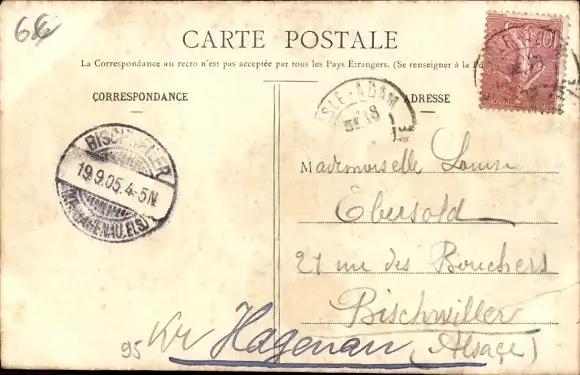 66
CARTE POSTALE
La Correspondance au recto n'est pas acceptée par tous les Pays Étrangers. (Se renseigner à la
CORRESPONDANCE
ADRESSE
ISLE-ADAM
18
10
BISCHWEILER
19.9.05.4-5N
(KR.HAGENAU.ELS)
Mademoiselle Louise
Ebersold
21 rue des Bouchers
Bischwiller
(Alsace)
95 Kr Hagenau